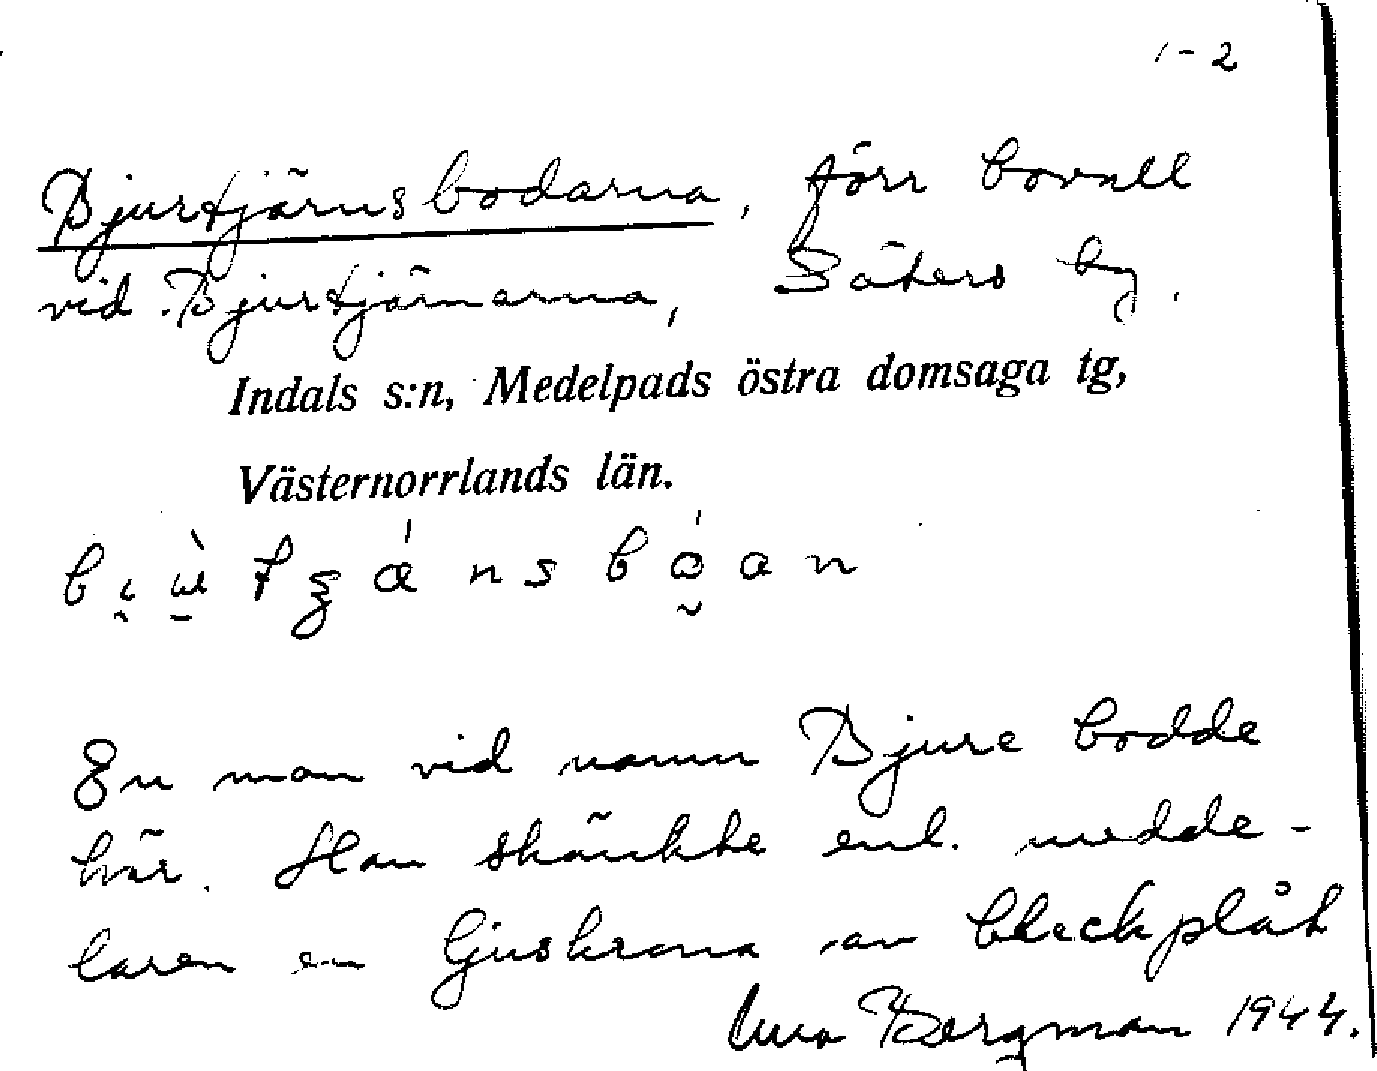 1-2
Bjurtjärnsbodarna, förr bovall
vid Bjurtjärnarna, Säters by.
Indals s:n, Medelpads östra domsaga tg,
Västernorrlands län.
En man vid namn Bjure bodde
här. Han skänkte enl. medde-
laren en ljuskrona av bleckplåt
Bergman 1944.